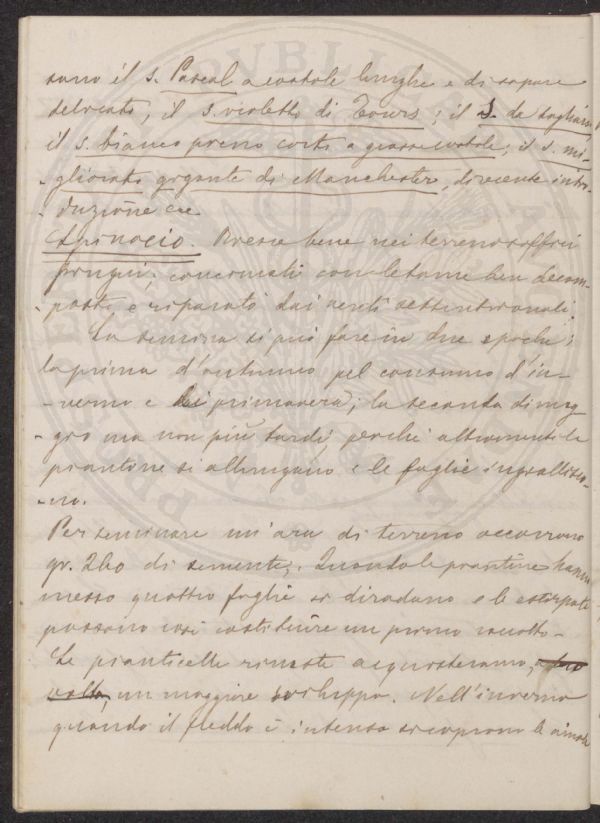 sano il s. Pascal a costole lunghe e di sapore
delicato, il s. violetto di Tours; il S. da tagliare,
il s. bianco pieno corto a grosse costole; il s. mi-
-gliorato gigante di Manchester, di recente intro-
-duzione ecc
Spinacio. Cresce bene nei terreni soffici
freschi, concimati con letame ben decom-
-posto, e riparati dai venti settentrionali.
La semina si può fare in due epoche:
la prima d'autunno pel consumo d'in-
-verno e di primavera; la seconda di mag-
-gio ma non più tardi, perchè altrimenti le
piantine si allungano e le foglie ingialli
-no.
Per seminare un'ara di terreno occorrono
gr. 260 di semente. Quando le piantine hanno
messo quattro foglie si diradano e le estirpate
possono così costituire un primo raccolto.
Le pianticelle rimaste acquisteranno,
volta, un maggiore sviluppo. Nell'inverno
quando il freddo è intenso si coprono le aiuole